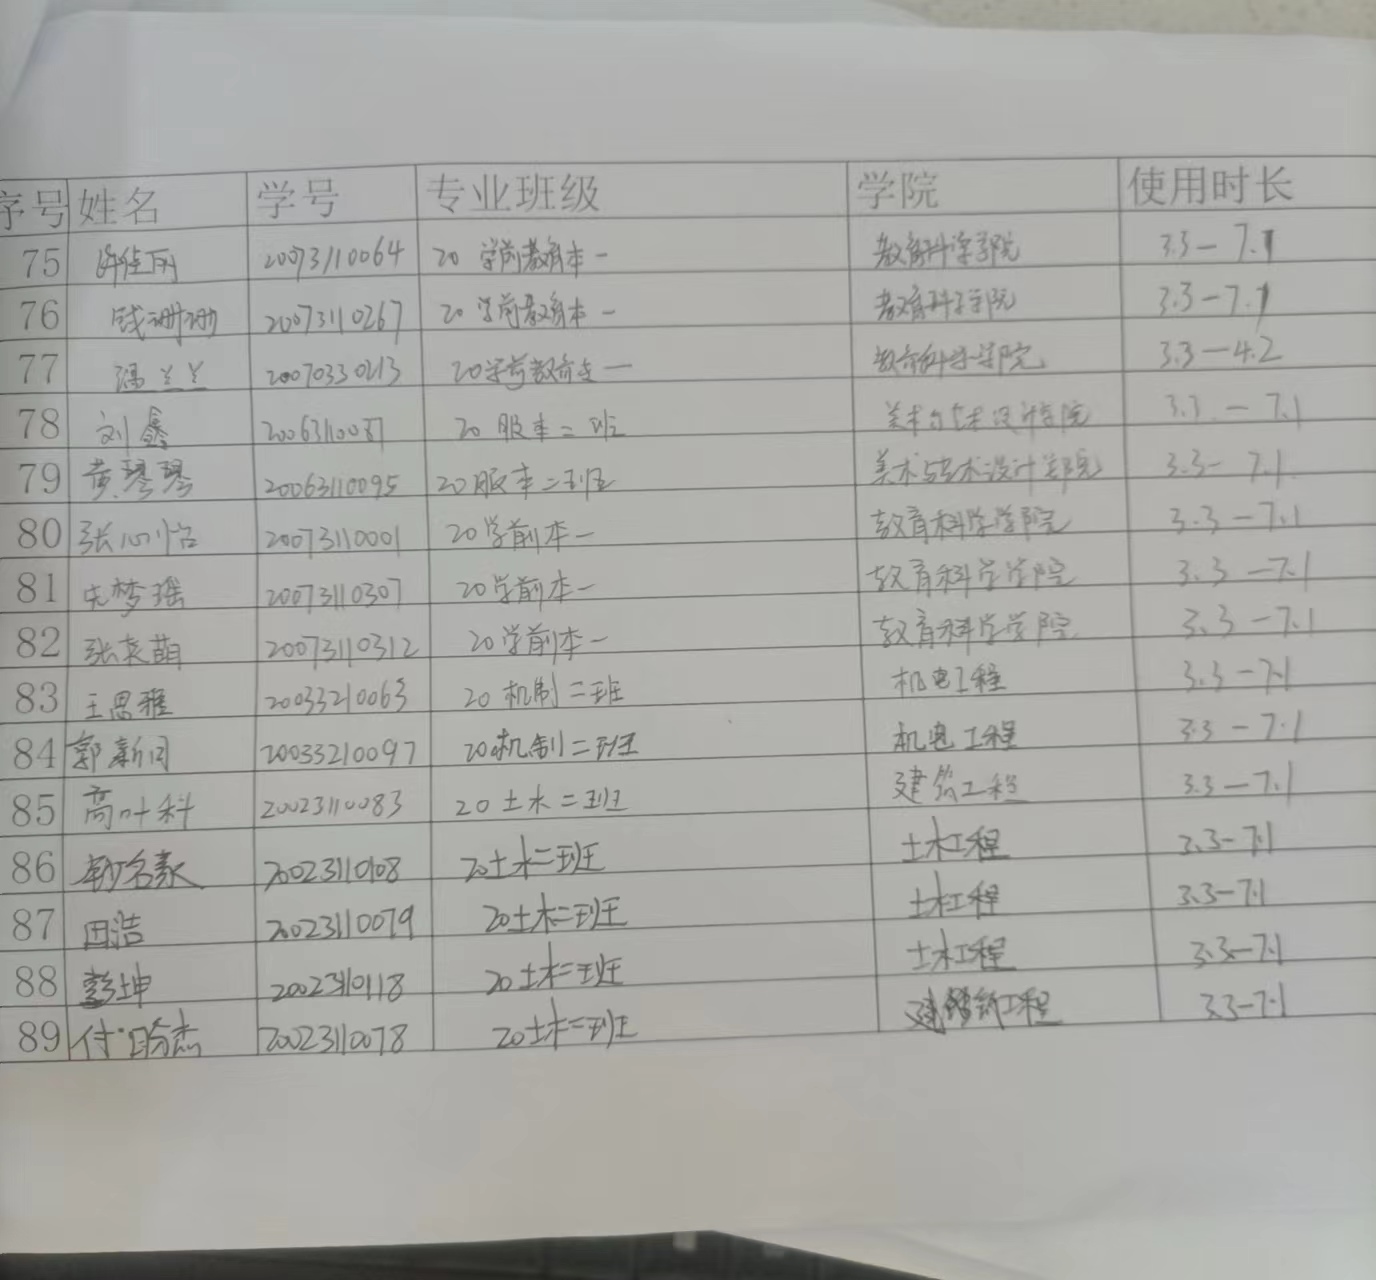 序号 姓名 学号 专业班级 学院 使用时长
75 20073110064 20 学前教育本一 教育科学学院 3.3-7.1
76 钱珊珊 20073110267 20 学前教育本一 教育科学学院 3.3-7.1
77 冯兰兰 20070330213 20学前教育本一 教育科学学院 3.3-4.2
78 刘鑫 20063110087 20 服本二班 美术与艺术设计学院 3.3-7.1
79 黄琴琴 20063110095 20服本二班 美术与艺术设计学院 3.3-7.1
80 张心怡 20073110001 20学前本一 教育科学学院 3.3-7.1
81 梦瑶 20073110307 20学前本一 教育科学学院 3.3-7.1
82 张英萌 20073110312 20学前本一 教育科学学院 3.3-7.1
83 王思雅 20033210063 20机制二班 机电工程 3.3-7.1
84 郭新闯 20033210097 20机制二班 机电工程 3.3-7.1
85 高叶科 20023110083 20土木二班 建筑工程 3.3-7.1
86 名豪 20023110108 20土木二班 土木工程 3.3-7.1
87 田浩 20023110079 20土木二班 土木工程 3.3-7.1
88 彭坤 20023110118 20土木二班 土木工程 3.3-7.1
89 付 杰 20023110078 20土木二班 建筑工程 3.3-7.1